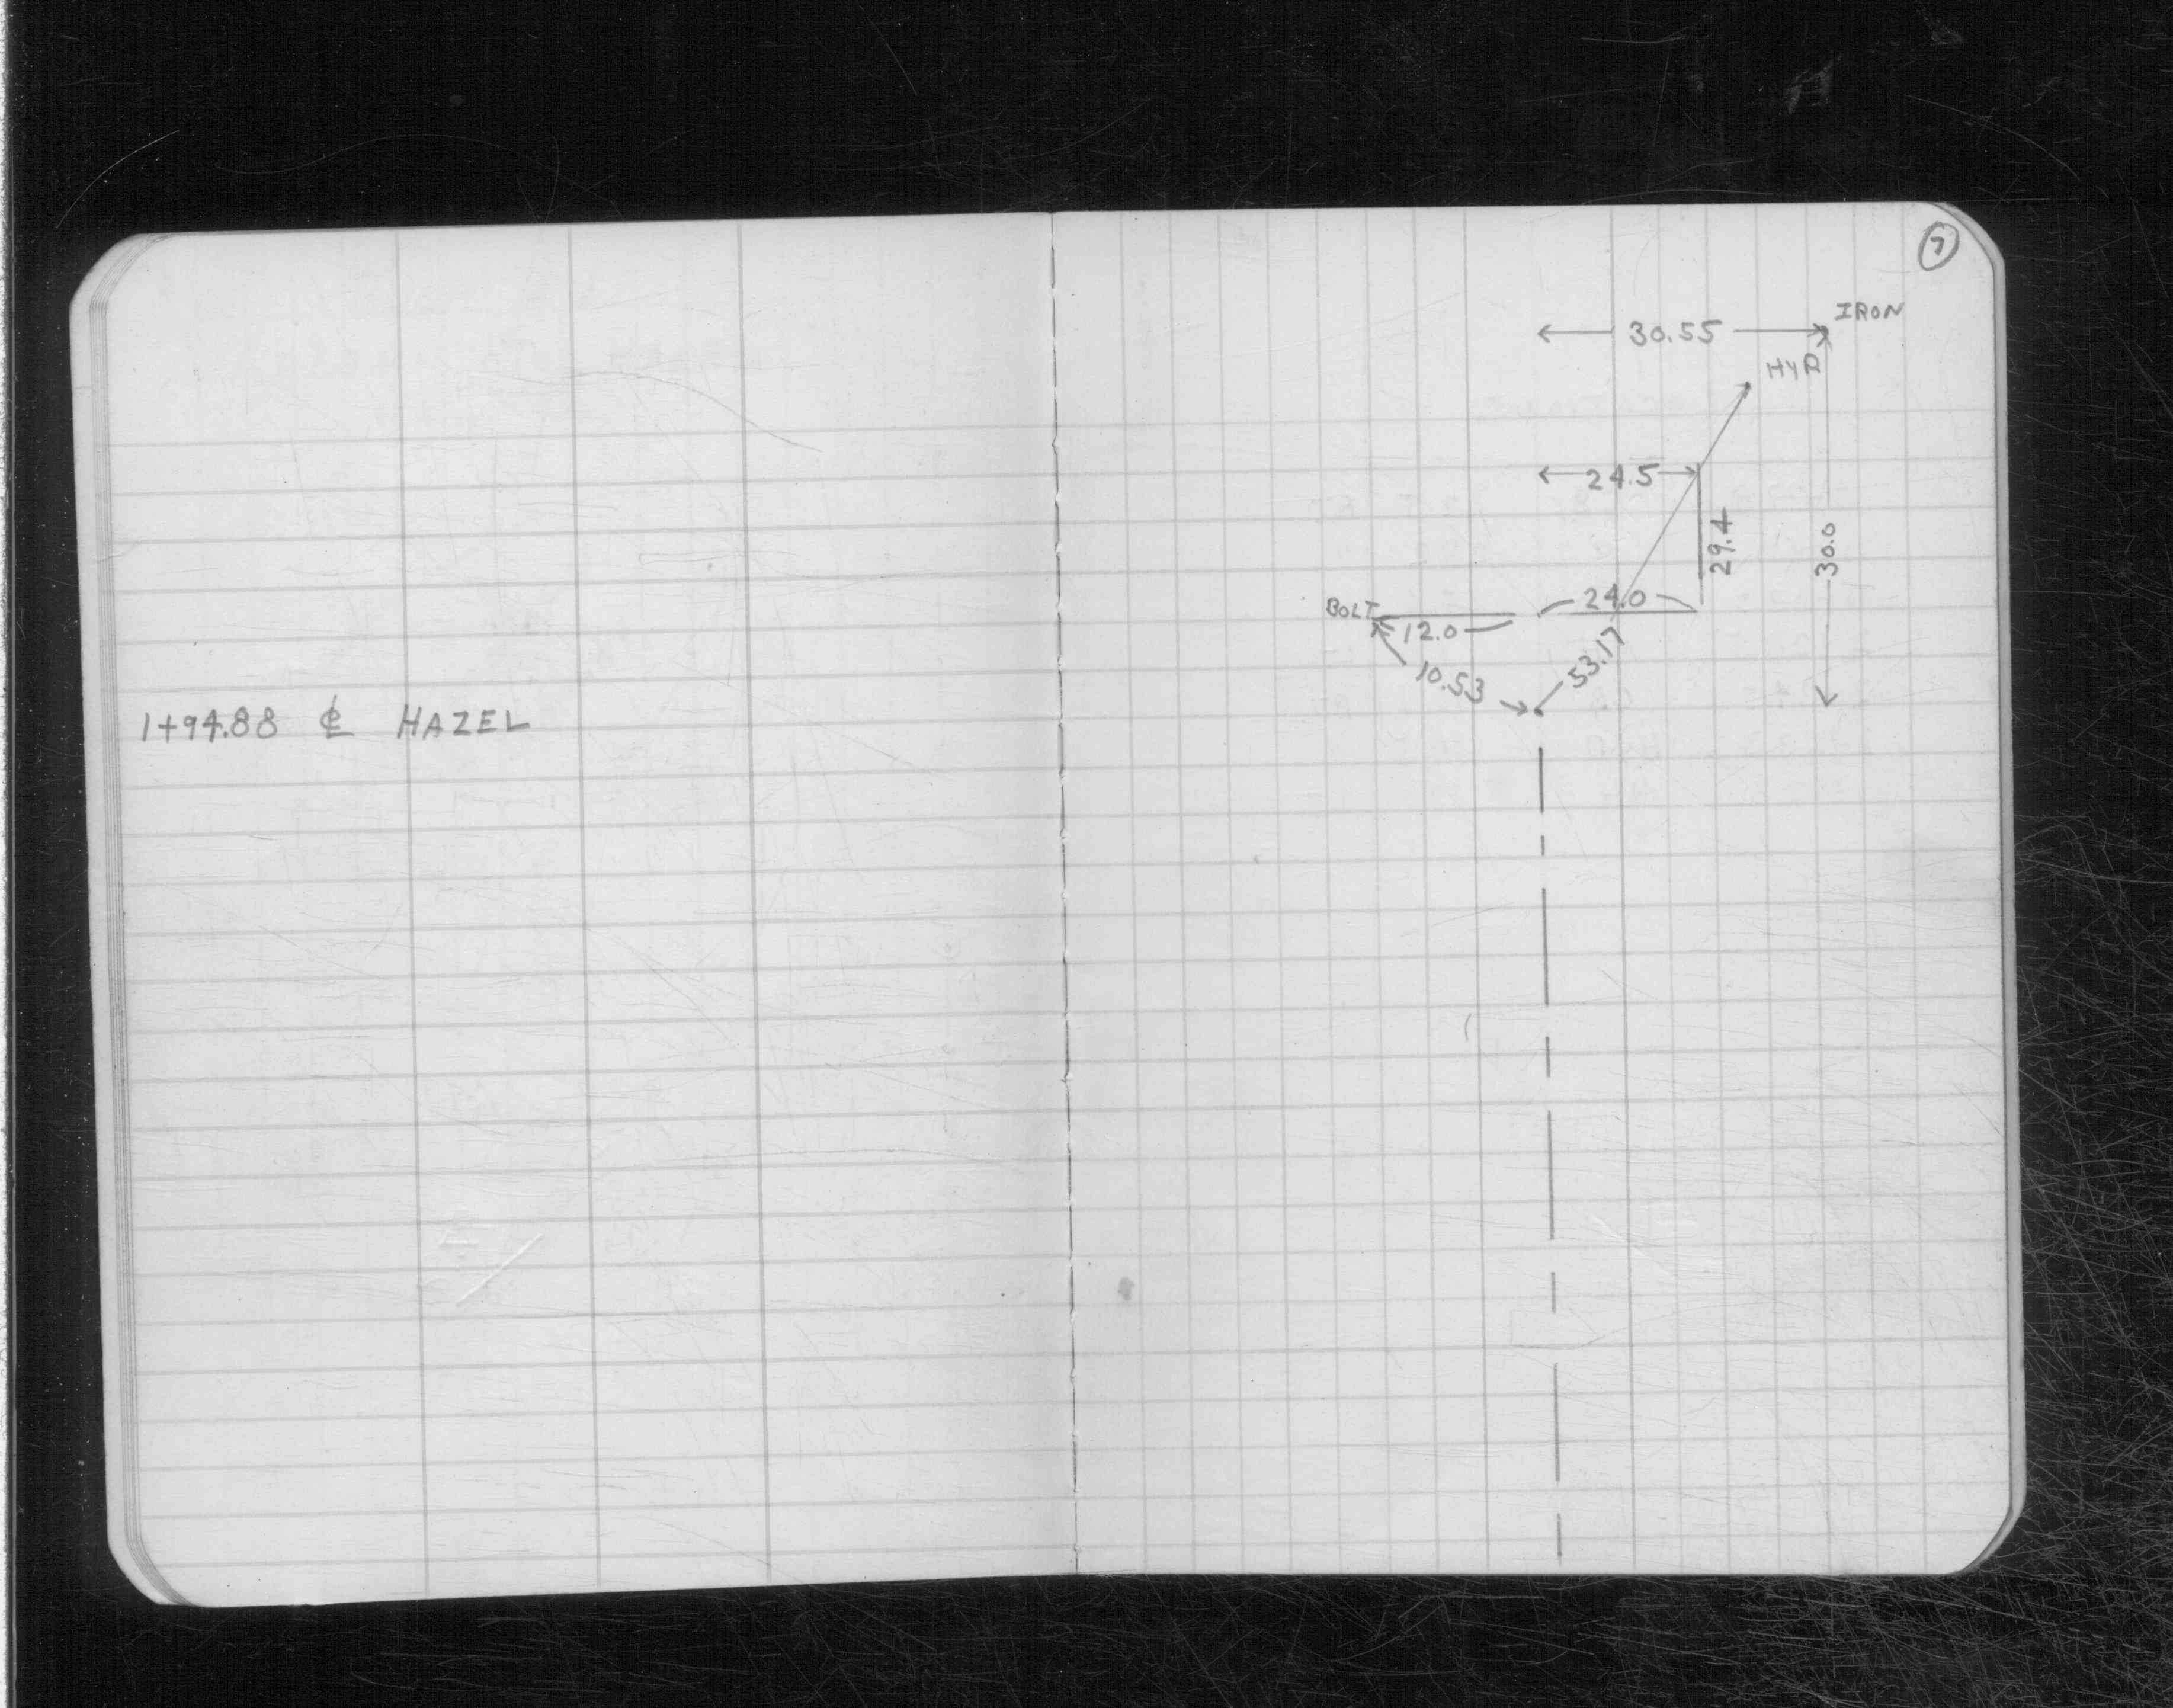 7
IRON
30.55
HYD
24.5
29.4
30.0
24.0
BOLT
12.0
53.17
10.53
1+94.88 ℄ HAZEL